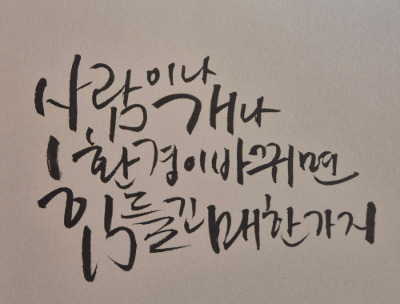 사람이나 개나
환경이 바뀌면
힘들긴 매한가지